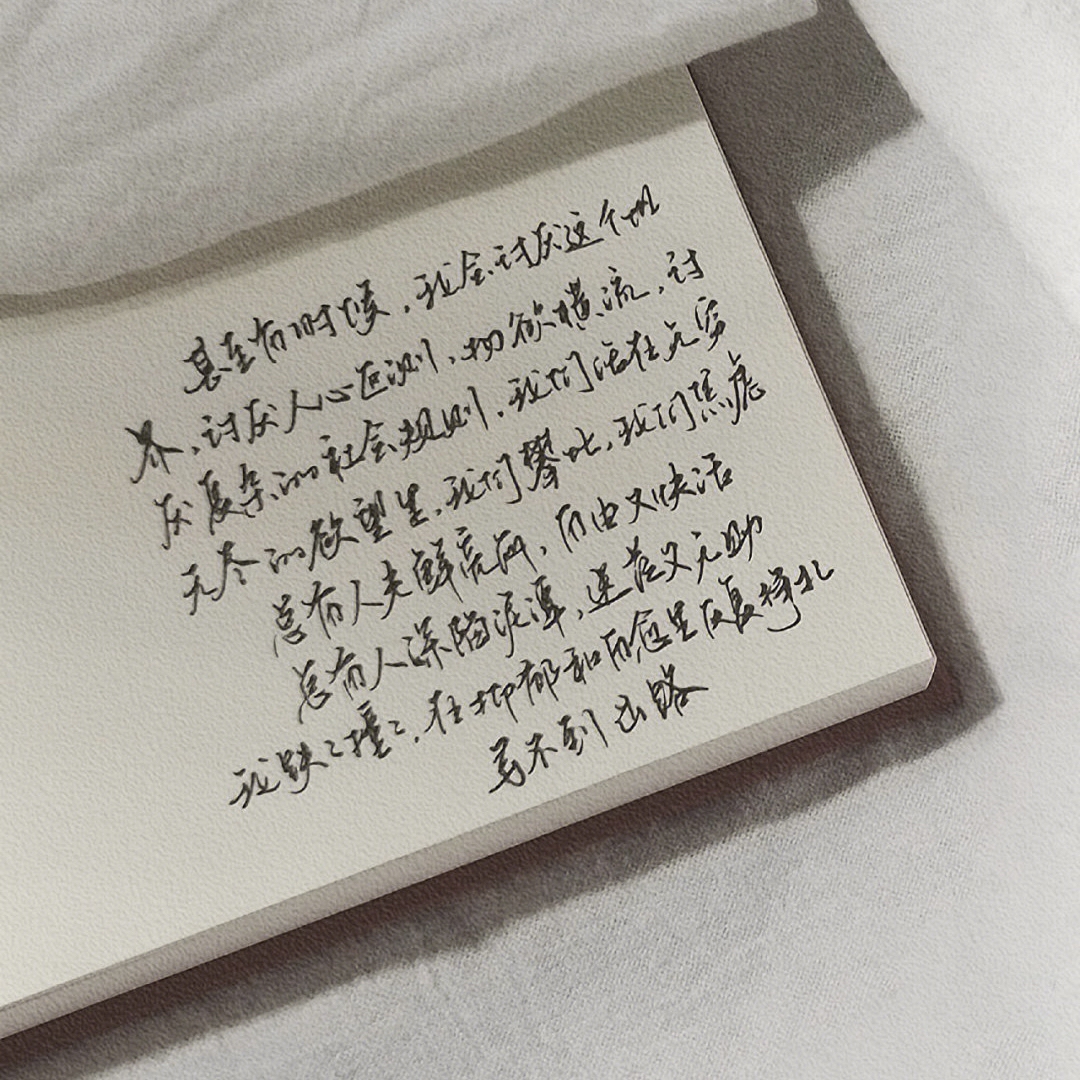 甚至有时候，我会讨厌这个世
界，讨厌人心叵测，物欲横流，讨
厌复杂的社会规则，我们活在无穷
无尽的欲望里，我们攀比，我们焦虑
总有人光鲜亮丽，自由又快活
总有人深陷泥潭，堕落又无助
我跌跌撞撞，在抑郁和自愈里反复挣扎
寻不到出路